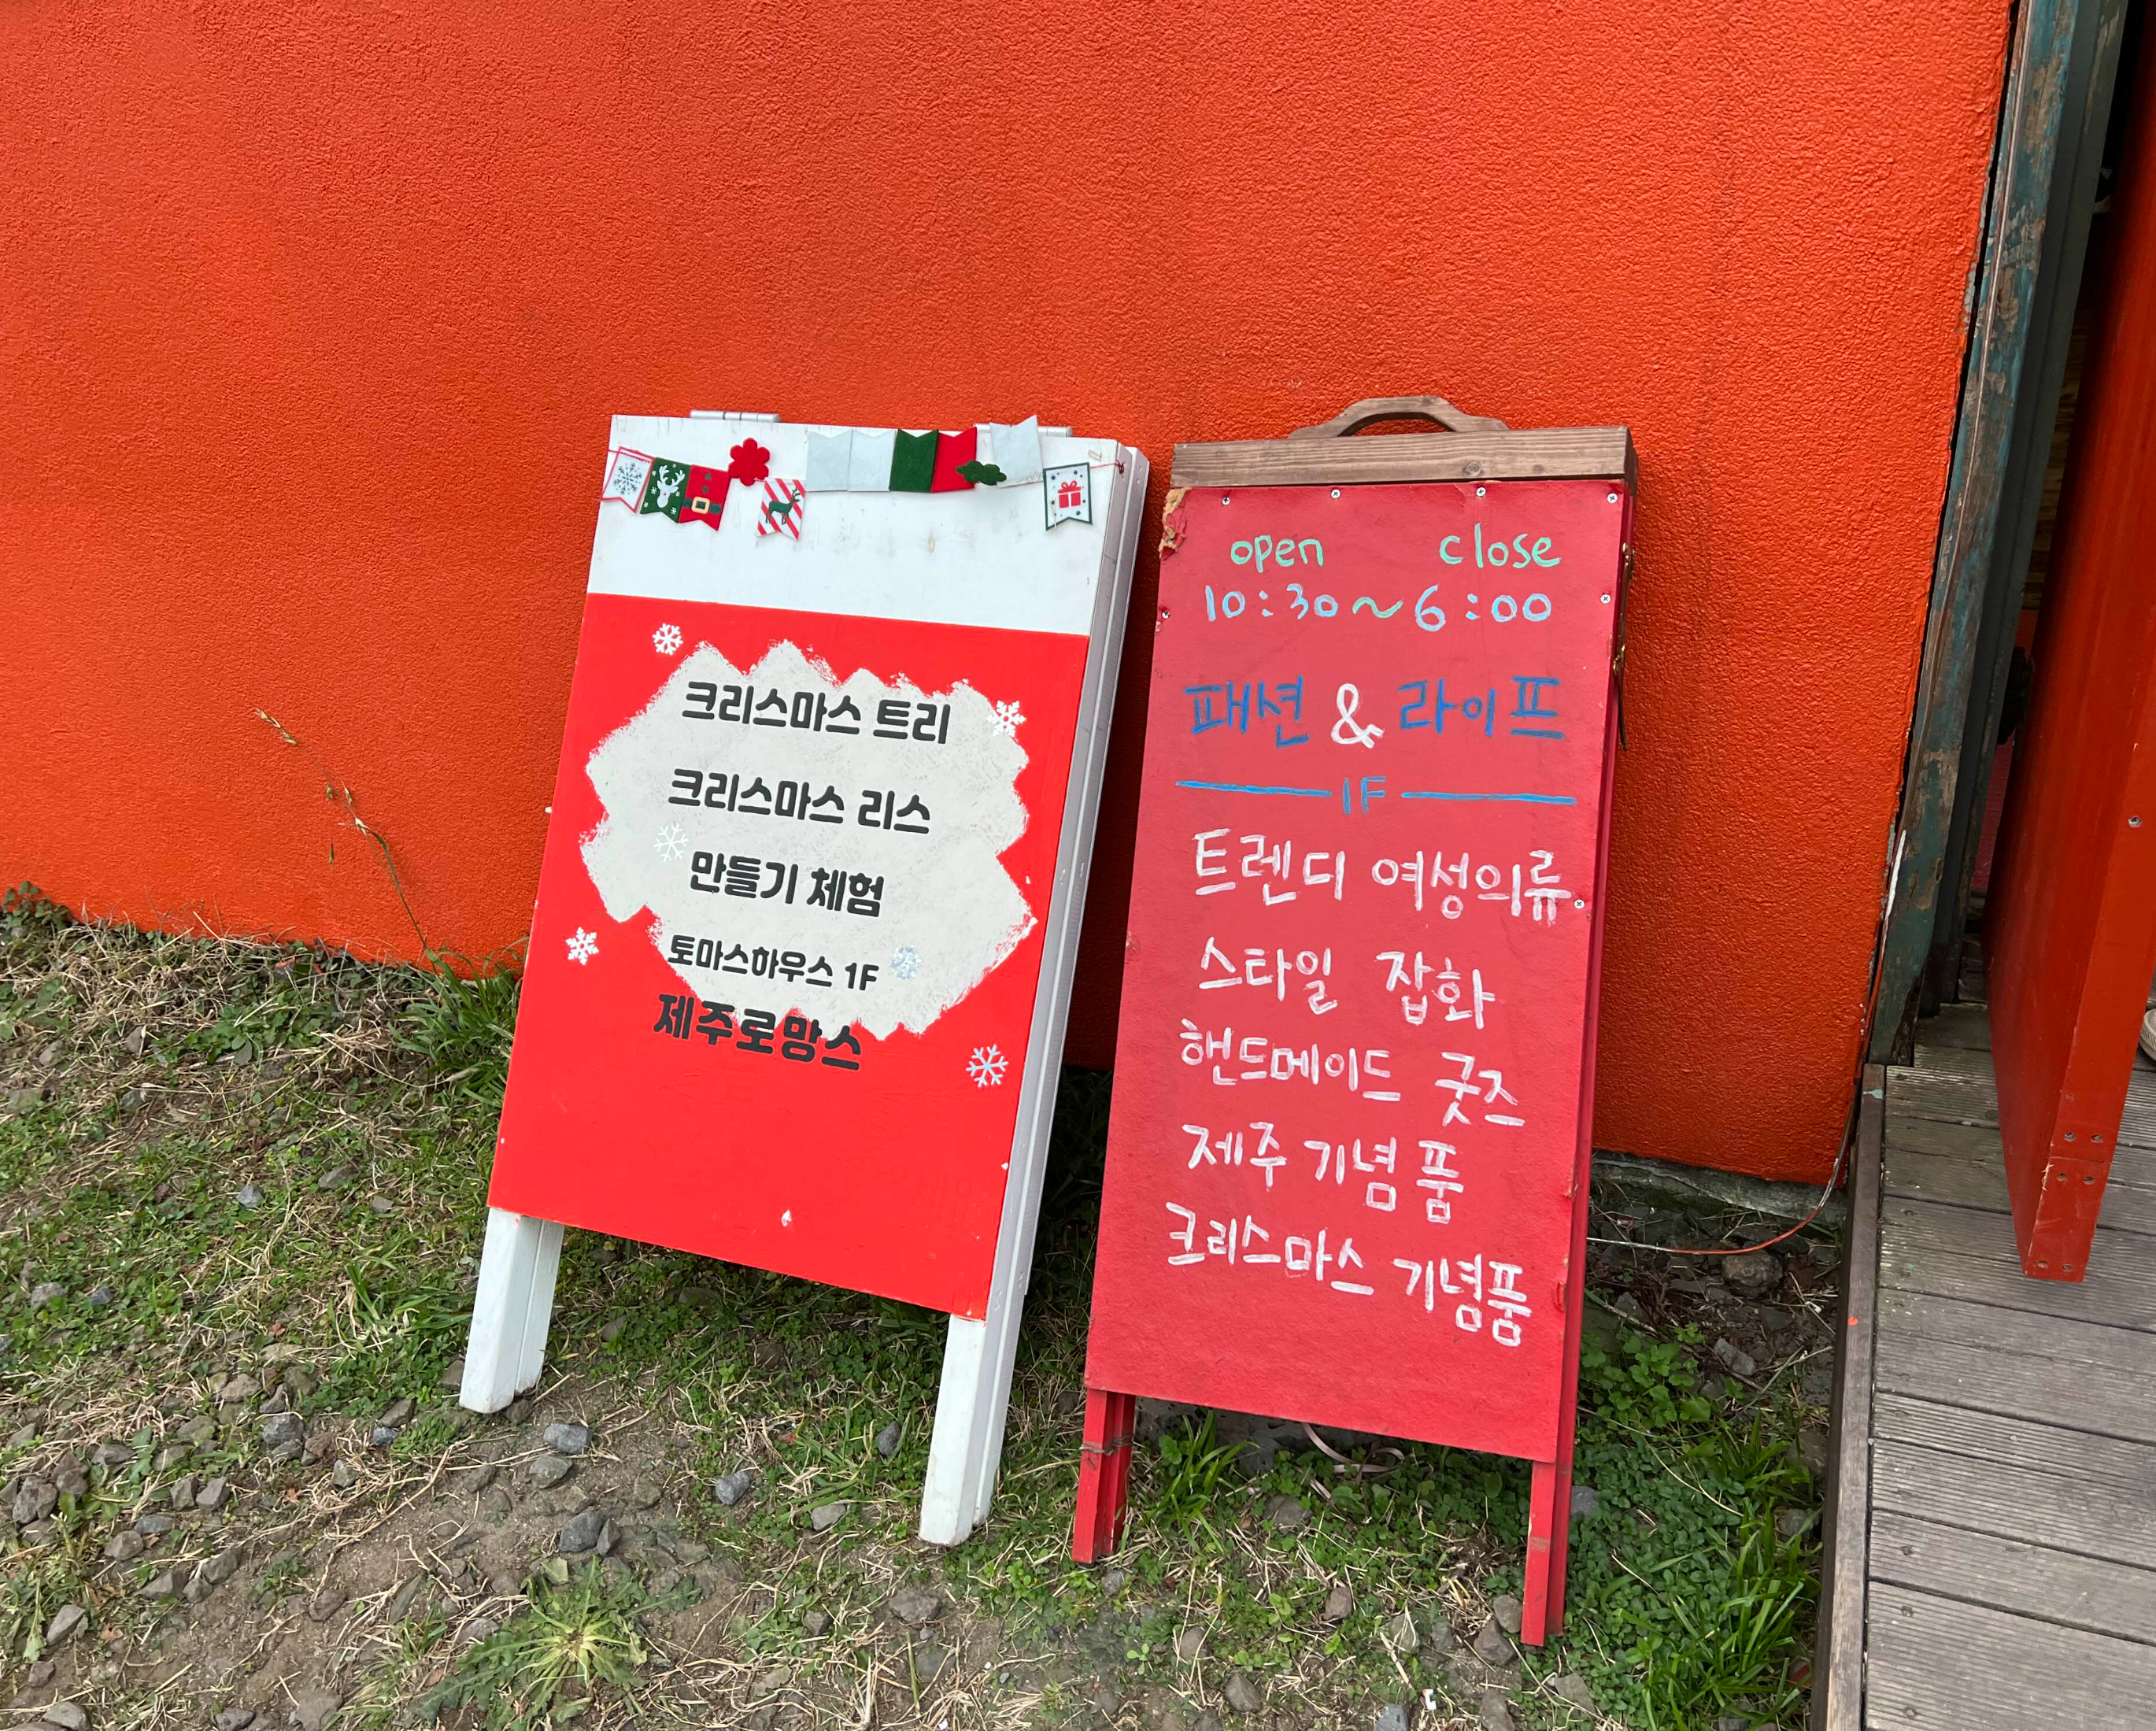 크리스마스 트리
크리스마스 리스
만들기 체험
토마스하우스 1F
제주로망스
open close
10:30~6:00
패션 & 라이프
1F
트렌디 여성의류
스타일 잡화
핸드메이드 굿즈
제주 기념품
크리스마스 기념품